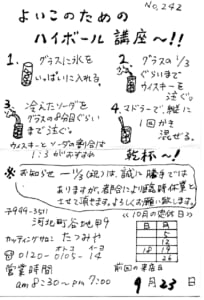 No.242
よいこのための
ハイボール講座〜!!
1. グラスに氷を
いっぱいに入れる。
2. グラスの1/3
ぐらいまで
ウイスキーを
注ぐ。
3. 冷えたソーダを
グラスの8分目ぐらい
まで注ぐ。
ウイスキーとソーダの割合は
1:3がおすすめ
4. マドラーで、縦に
1回がき
混ぜる。
乾杯〜!
※お知らせ 11/3(祝)は、誠に勝手では
ありますが、都合により臨時休業と
させて頂きます。よろしくお願い致します。
〒999-3511
河北町谷地甲9
カッティングサロン たつみや
オトコ イーヨ
0120-0105-14
営業時間
am8:30〜pm7:00
《10月の定休日》
日 月
5
12
18 19
26
前回の来店日
9月23日